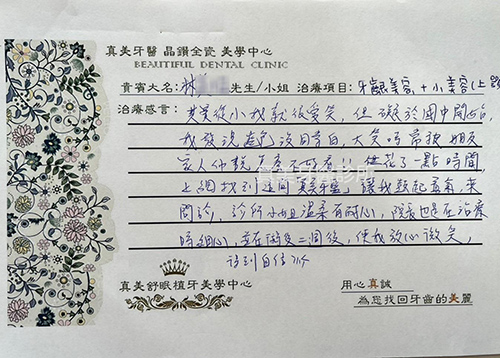 真美牙醫 晶鑽全瓷 美學中心
BEAUTIFUL DENTAL CLINIC
貴賓大名:林 先生/小姐 治療項目:牙齦美容+小美容(上
治療感言: 其實從小我就很愛笑,但礙於國中開始
我發現 大笑時常被朋友
家人 花了一點時間,
上網找到這間真美牙醫 讓我鼓起勇氣來
問診,診所小姐溫柔有耐心,院長也是在治療
時細心,並在術後二個後,使我放心微笑,
找到自信
真美舒眠植牙美學中心
用心真誠
為您找回牙齒的美麗